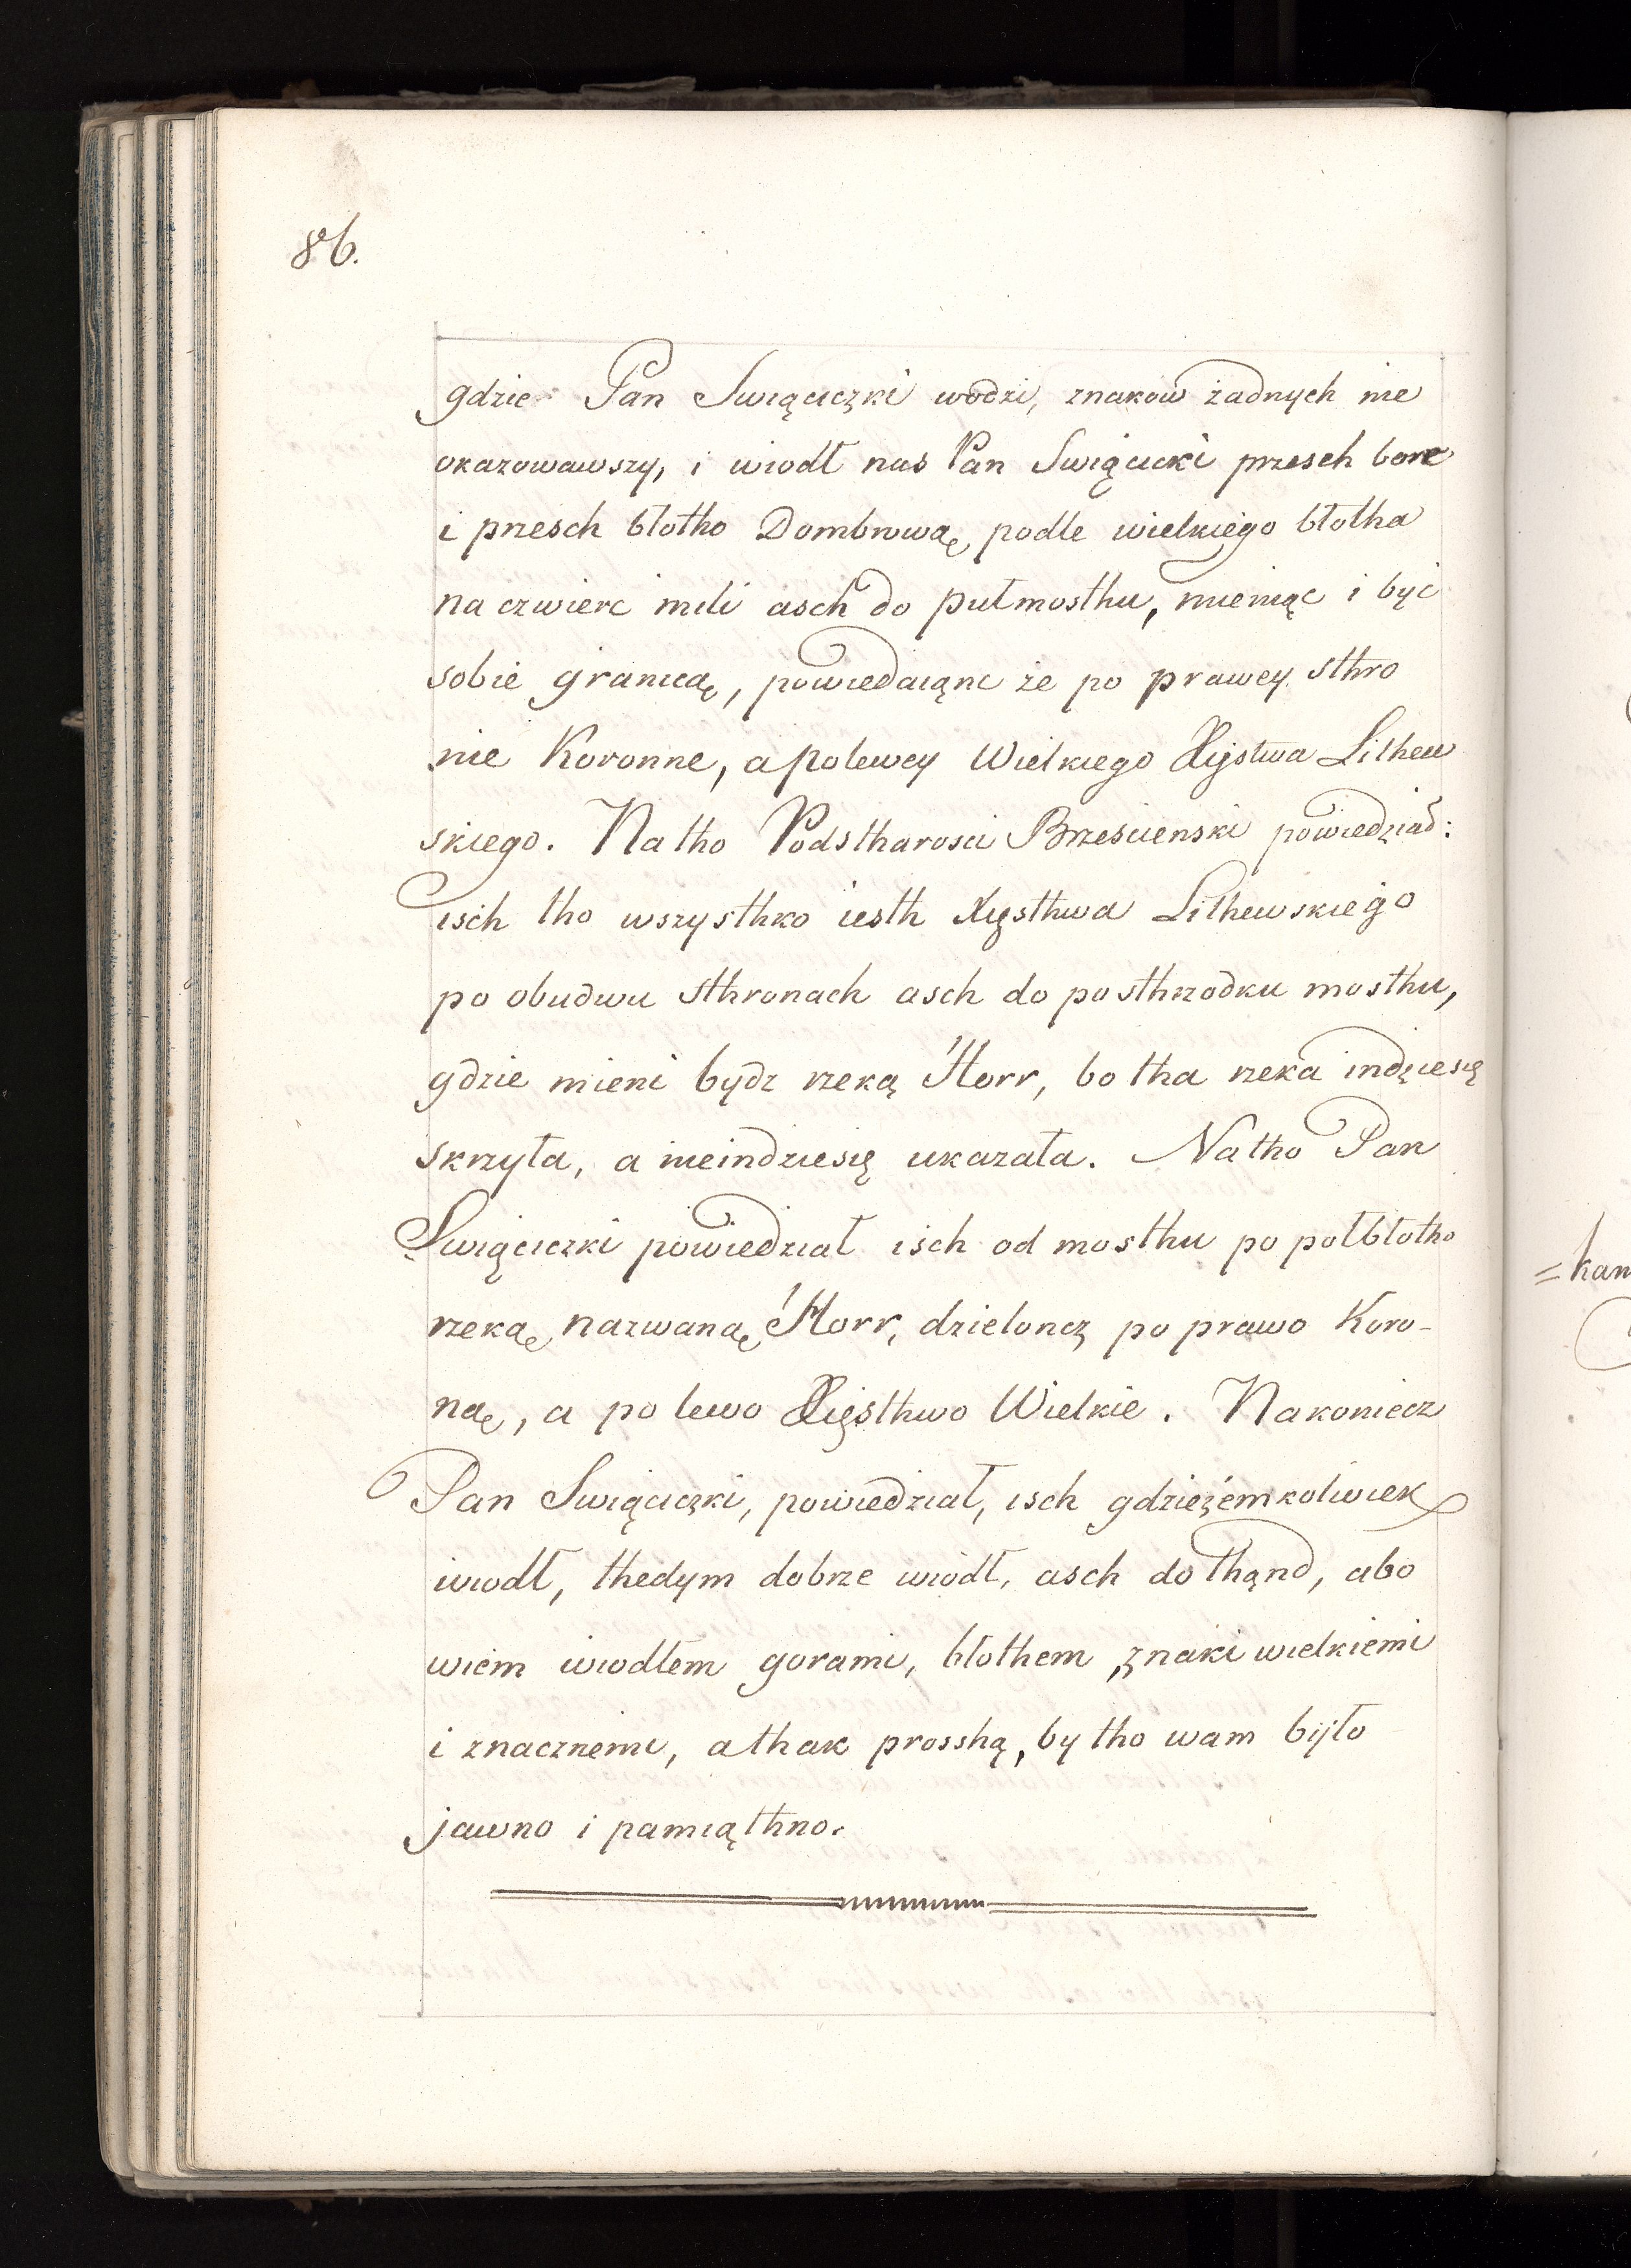 86.
gdzie Pan Swiąciczki wodzi, znakow żadnych nie
okazowawszy, i wiodł nas Pan Swiącicki przesch bore
i przesch błotho Dombrową, podle wielkiego błotha
na czwierc mili asch do pułmosthu, mieniąc i być
sobie granicą, powiedaiąnc że po prawey sthro
nie Koronne, a polewey Wielkiego Xięstwa Lithew
skiego. Na tho Podstharosci Brzescienski powiedział:
isch tho wszysthko iesth Xięsthwa Lithewskiego
po obudwu sthronach asch do posthrzodku mosthu,
gdzie mieni bydz rzeką Horr, bo tha rzeka indzie się
skrzyła, a nieindzie się ukazała. Natho Pan
Swiąciczki powiedział isch od mosthu po połbłotho
rzeką nazwaną Horr, dzieloncz po prawo Koro-
ną, a po lewo Xięsthwo Wielkie. Nakoniecz
Pan Swiąciczki, powiedział, isch gdzieżemkoliwiek
wiodł, thedym dobrze wiodł, asch do thąnd, abo
wiem wiodłem gorami, błothem, znaki wielkiemi
i znacznemi, a thak prosshą, by tho wam było
jawno i pamiąthno.
=kam